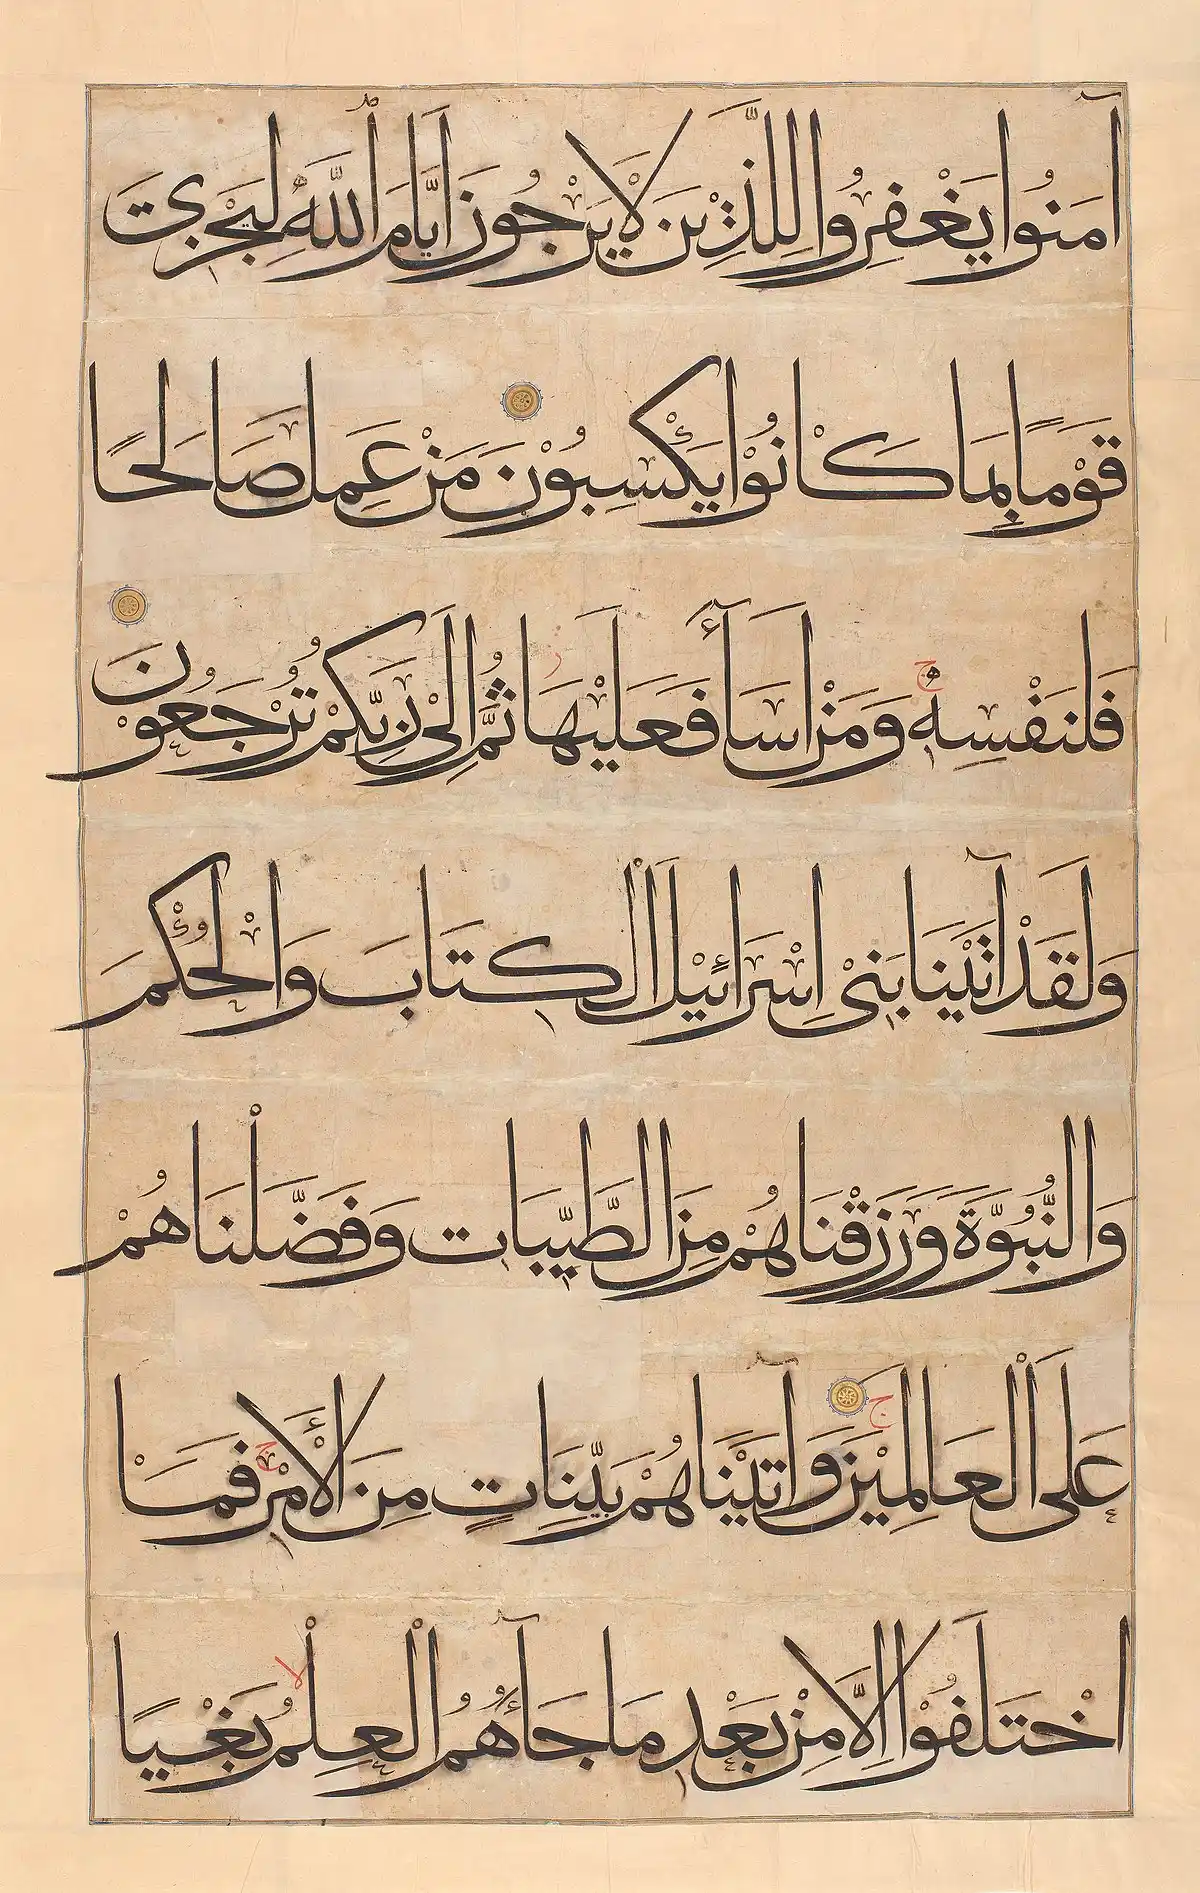 آمَنُوا يَغْفِرُوا لِلَّذِيْنَ لَا يَرْجُونَ اَيَّامَ اللّٰهِ لِيَجْزِىَ
قَوْمًا بِمَا كَانُوْا يَكْسِبُوْنَ مَنْ عَمِلَ صَالِحًا
فَلِنَفْسِهٖ وَمَنْ اَسَآءَ فَعَلَيْهَا ثُمَّ اِلٰى رَبِّكُمْ تُرْجَعُوْنَ
وَلَقَدْ آتَيْنَا بَنِىْ اِسْرَائِيْلَ الْكِتَابَ وَالْحُكْمَ
وَالنُّبُوَّةَ وَرَزَقْنَاهُمْ مِنَ الطَّيِّبَاتِ وَفَضَّلْنَاهُمْ
عَلَى الْعَالَمِيْنَ وَآتَيْنَاهُمْ بَيِّنَاتٍ مِنَ الْأَمْرِ فَمَا
اخْتَلَفُوْا اِلَّا مِنْ بَعْدِ مَا جَآءَهُمُ الْعِلْمُ بَغْيًا